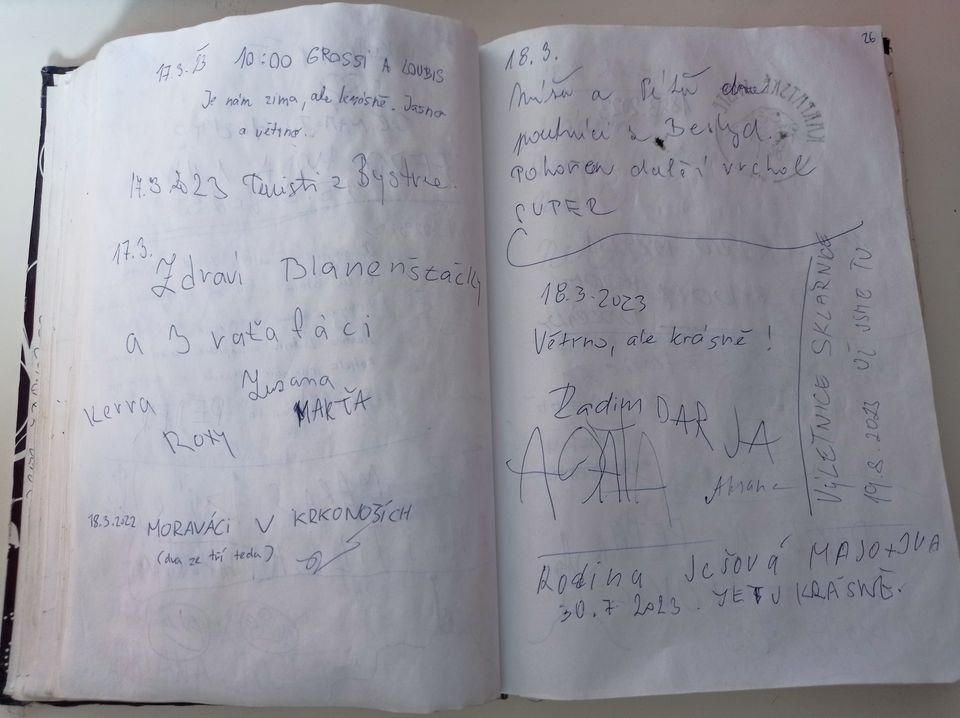 17.3. 23 10:00 GROSSI A LOUBIS
Je nám zima, ale krásně. Jasno
a větrno..
17.3 2023 Turisti z Bystrce.
17.3.
Zdraví Blanenšťáčky
a 3 raťafáci
Kerra Zuzana
MARTA
ROXY
18.3.2022 MORAVÁCI V KRKONOŠÍCH
(dva ze tří teda)
26
18.3.
Míša a Péťa dva
poutníci z Beskyd.
Pokořen další vrchol
SUPER
18.3.2023
Větrno, ale krásně!
Radim DARJA
AGÁTA
VÝLETNICE SKLARŇNDE
19.8.2023 UŽ JSME TU
Rodina Ješová MAJO+IVA
30.7 2023. JE TU KRÁSNĚ.